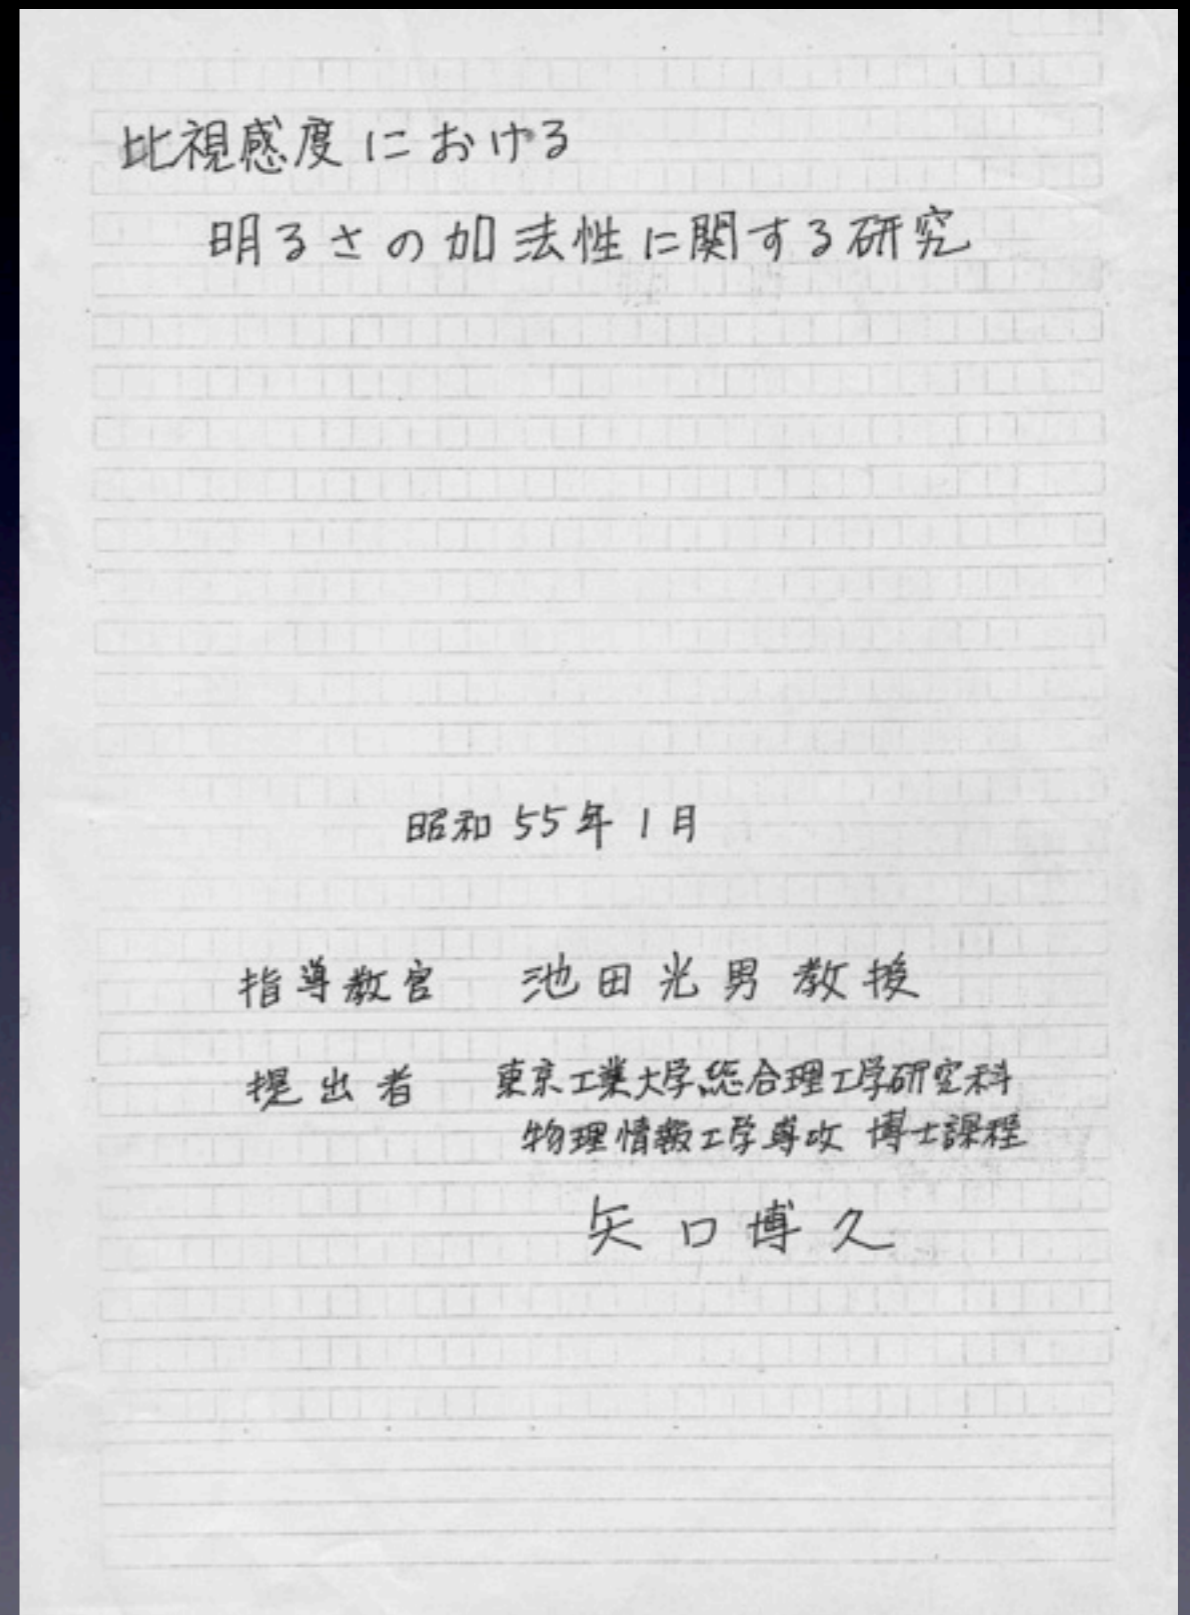 比視感度における
明るさの加法性に関する研究
昭和55年1月
指導教官 池田光男教授
提出者 東京工業大学総合理工学研究科
物理情報工学専攻 博士課程
矢口博久